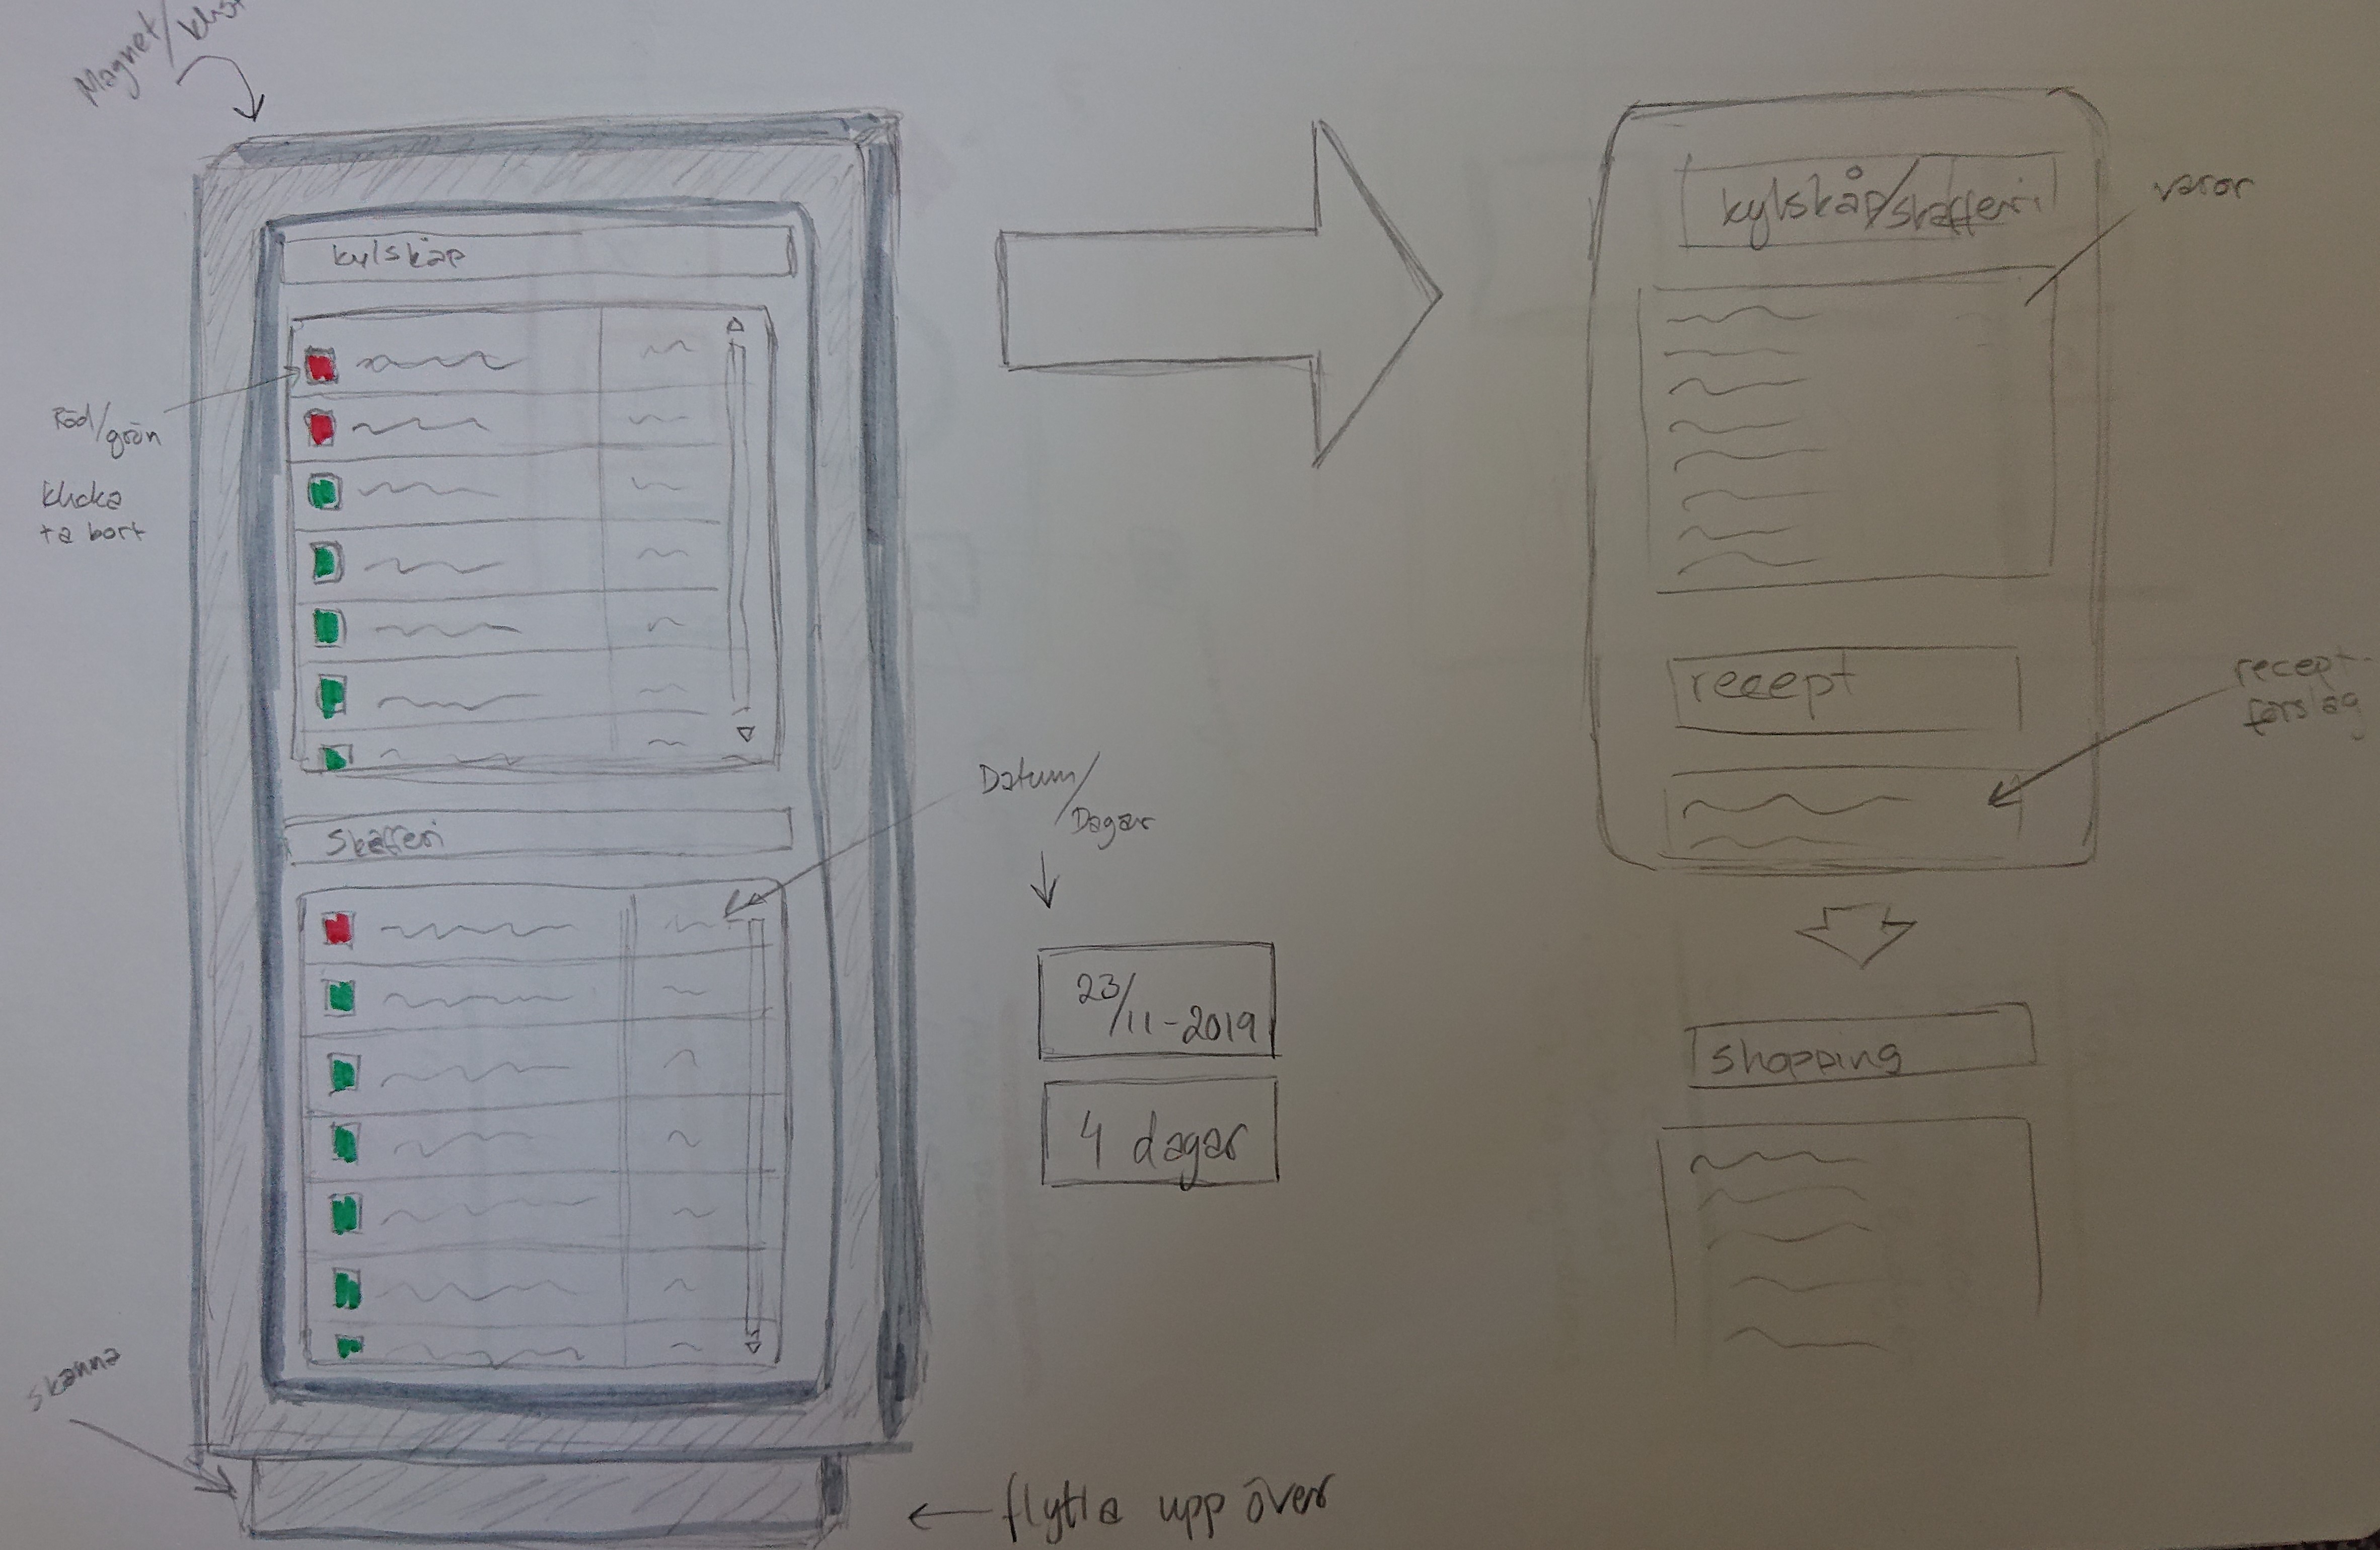 Magnet/
kylskåp
Röd/
grön
klicka
ta bort
Skafferi
Datum/
Dagar
23/11-2019
4 dagar
skanna
flytta upp över
kylskåp/skafferi
varor
recept
recept-
förslag
shopping